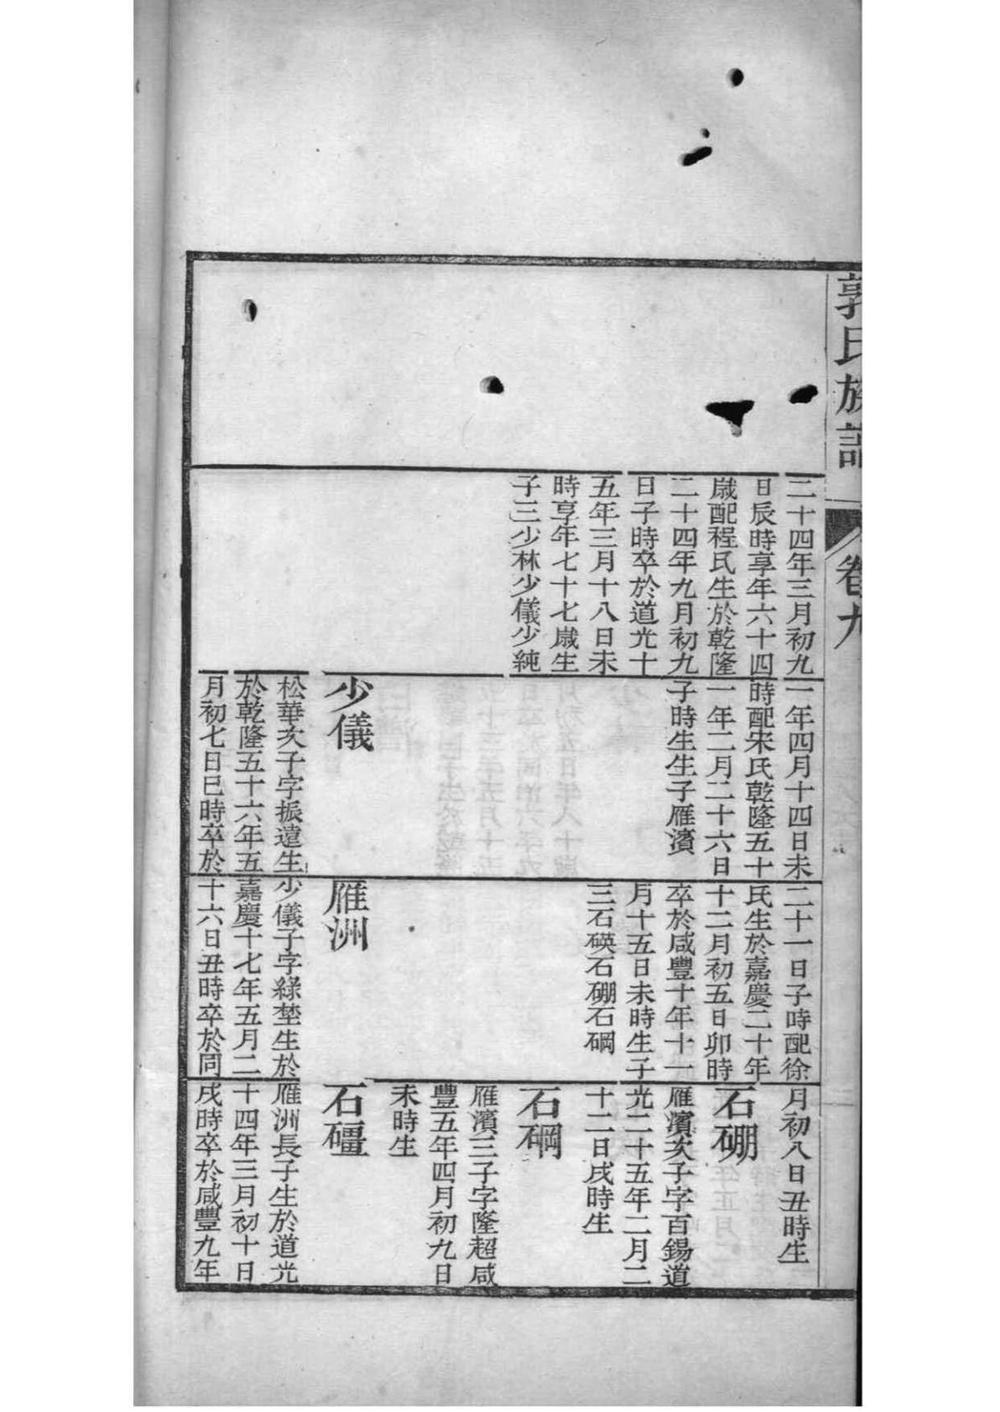 郭氏族譜
卷九
二十四年三月初九
日辰時享年六十四
歲配程氏生於乾隆
二十四年九月初九
日子時卒於道光十
五年三月十八日未
時享年七十七歲生
子三少林少儀少純
一年四月十四日未
時配宋氏乾隆五十
一年二月二十六日
子時生生子雁濱
少儀
松華次子字振遠生
於乾隆五十六年五
月初七日巳時卒於
二十一日子時配徐
民生於嘉慶二十年
十二月初五日卯時
卒於咸豐十年十一
月十五日未時生子
三石磀石硼石碙
雁洲
少儀子字綠埜生於
嘉慶十七年五月二
十六日丑時卒於同
月初八日丑時生
石硼
雁濱次子字百錫道
光二十五年二月二
十二日戌時生
石碙
雁濱三子字隆超咸
豐五年四月初九日
未時生
石礓
雁洲長子生於道光
十四年三月初十日
戌時卒於咸豐九年